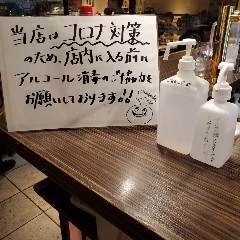 当店は コロナ対策
のため、店内に入る前に
アルコール消毒のご協力を
お願いしております!!